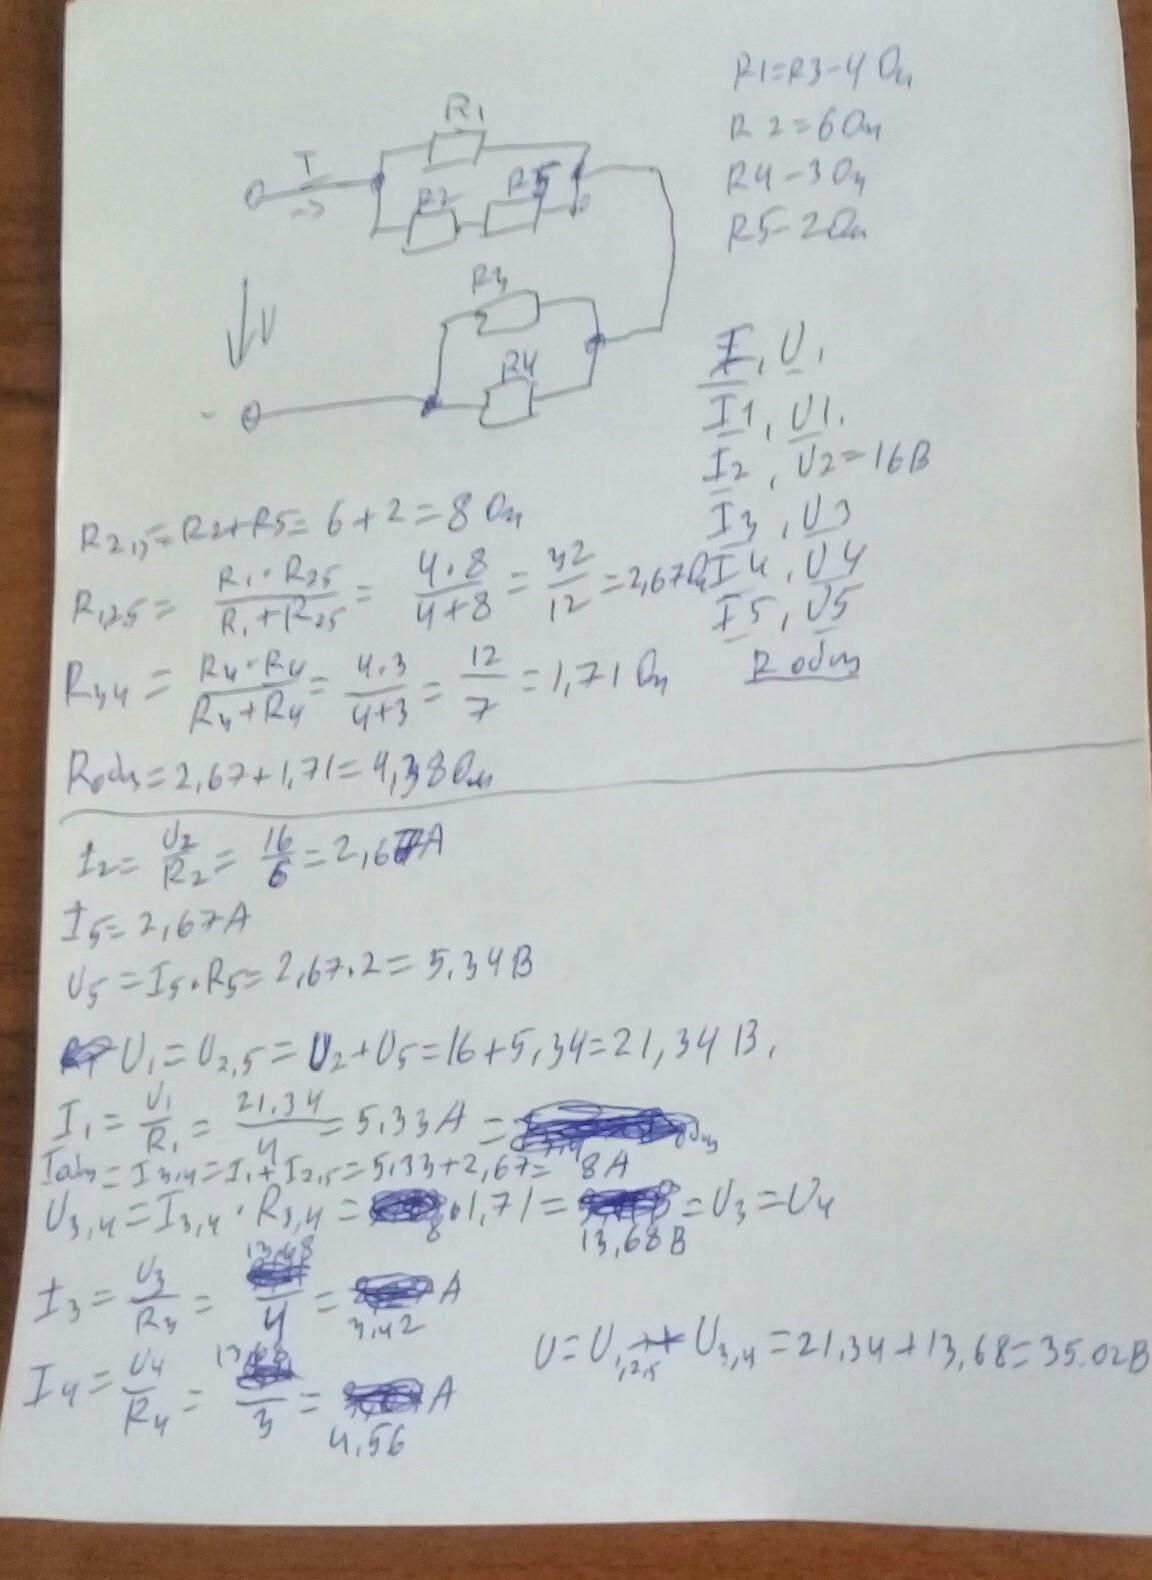 R1=R3-4 Ом
R2=6Ом
R4-3Ом
R5-2Ом
R1
I
R2
R5
R3
R4
U
I, U,
I1, U1.
I2, U2=16В
I3, U3
I4, U4
I5, U5
Rобщ
R2,5=R2+R5=6+2=8 Ом
R1,2,5= R1·R25/R1+R25 = 4·8/4+8 = 32/12 =2,67Ом
R34 = R3·R4/R3+R4 = 4·3/4+3 = 12/7 =1,71 Ом
Rобщ=2,67+1,71=4,38Ом
I2= U2/R2 = 16/6 =2,67А
I5=2,67А
U5=I5·R5=2,67·2=5,34В
U1=U2,5=U2+U5=16+5,34=21,34В,
I1= U1/R1 = 21,34/4 =5,33А =
общ
Iобщ=I3,4=I1+I2,5=5,33+2,67= 8А
U3,4=I3,4·R3,4= 8·1,71= 13,68В =U3=U4
I3= U3/R3 = 13,68/4 = 3,42 А
I4= U4/R4 = 13,68/3 = 4,56 А
U=U1,2,5+U3,4=21,34+13,68=35.02В